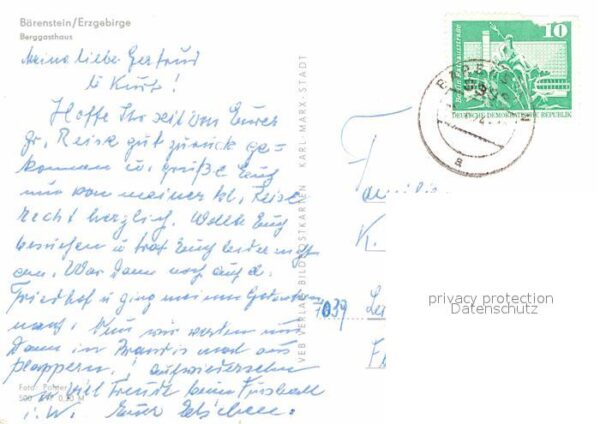 Bärenstein/Erzgebirge
Berggasthaus
Meine liebe Gertrud
u Kurt!
Hoffe Ihr seit von Eurer
gr. Reise gut zurück ge-
kommen u. grüße Euch
nun von meiner kl. Reise
recht herzlich. Wollte Euch
besuchen u traf Euch leider nicht
an. War dann noch auf d.
Friedhof u ging meinen Gedanken
nach. Nun wir werden uns
dann in Brandis mal aus
plappern. Aufwiedersehn
u. viel Freude beim Fussball
i. W. Eure
Foto: 
500 0,20 M
VEB VERLAG BILDPOSTKARTEN KARL-MARX-STADT
10
DEUTSCHE DEMOKRATISCHE REPUBLIK
a
Familie
K.
7039
privacy protection
Datenschutz